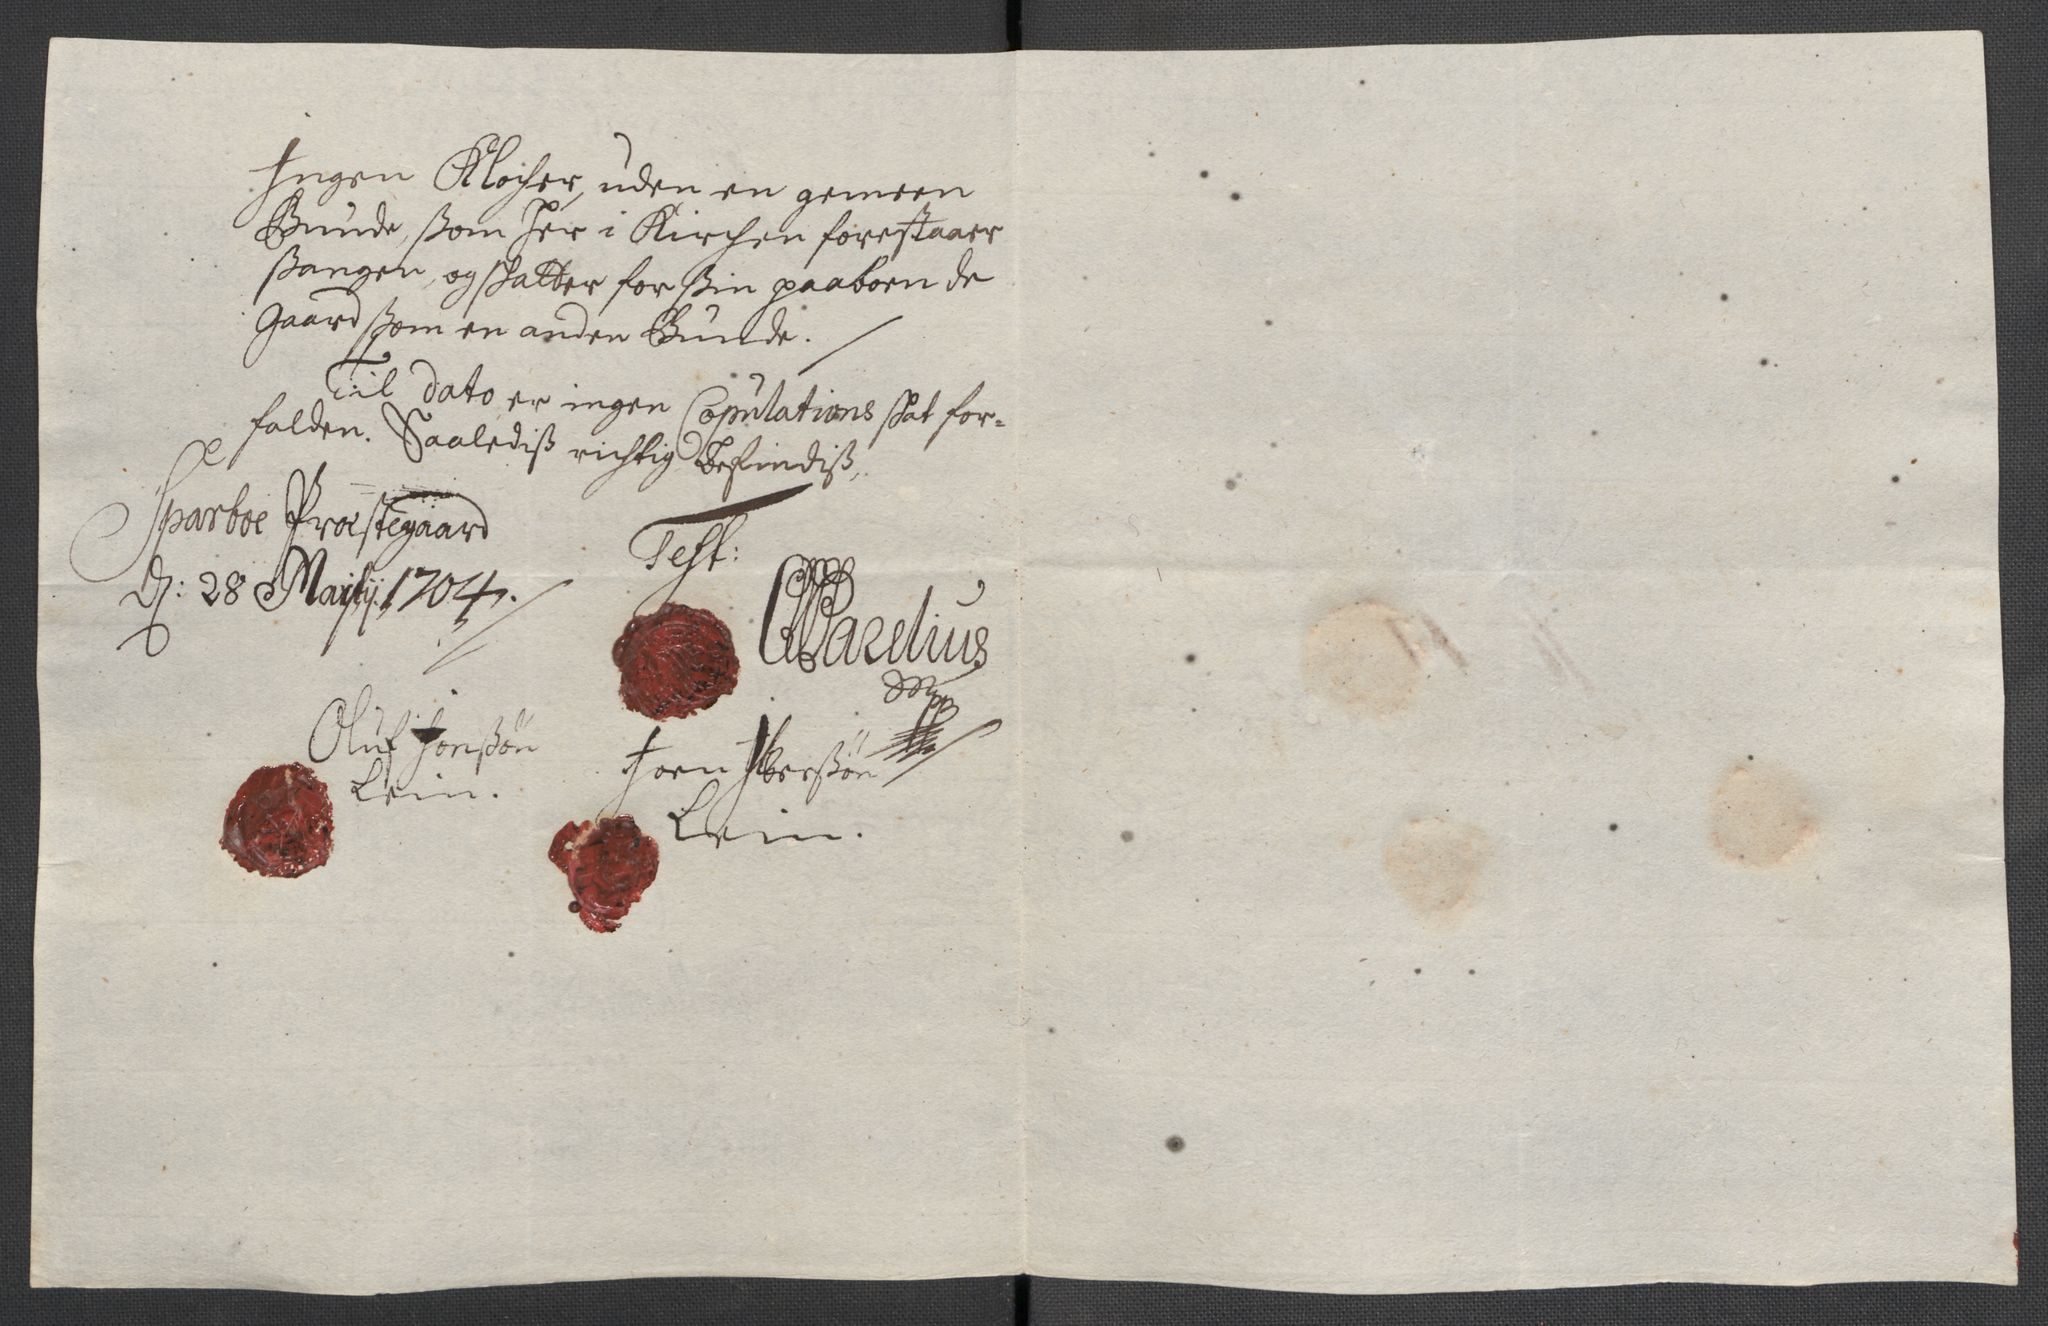 Ingen Klocher, uden en gemeen
Bunde, som her i Kirchen forestaaer
sangen, og skatter for sin paaboende
gaard som en anden Bunde.
Til dato er ingen Copulations skat for-
falden. Saalediß richtig befindiß,
Sparboe Præstegaard
d: 28 Maÿ 1704.
Test:
Parelius
mpp
Oluf Jonsßön
Lein.
Joen Iverßön
Lein.